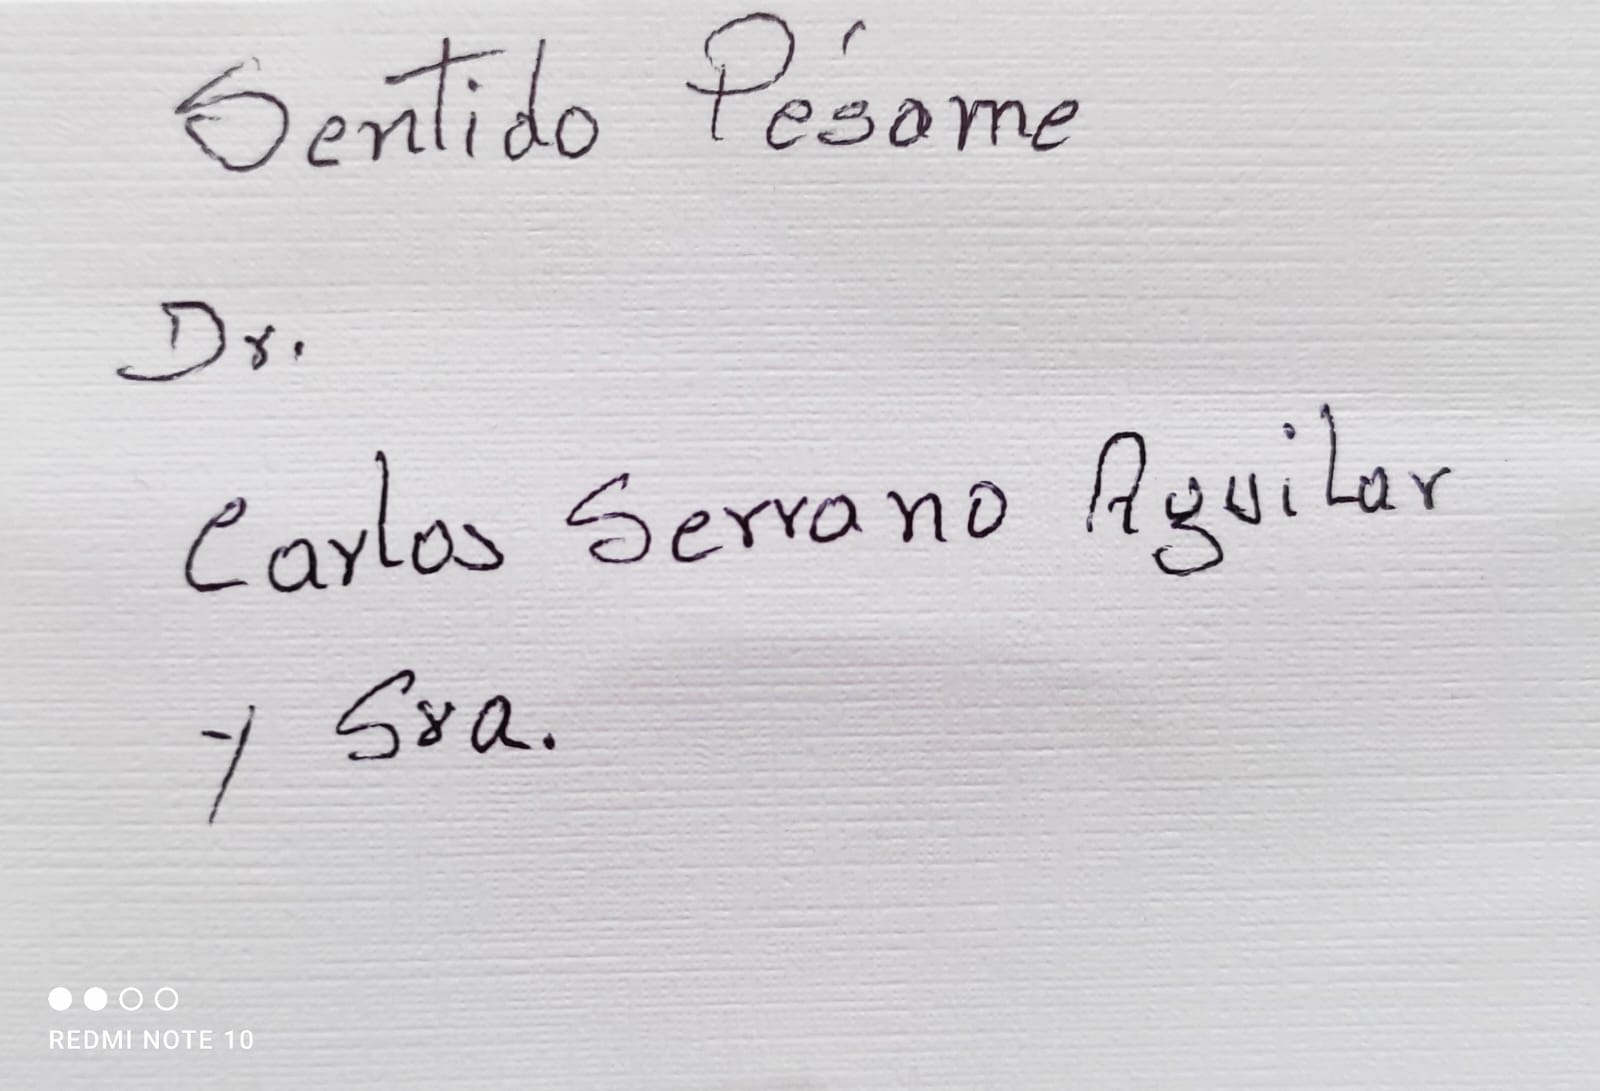 Sentido Pésame
Dr.
Carlos Serrano Aguilar
y Sra.
REDMI NOTE 10